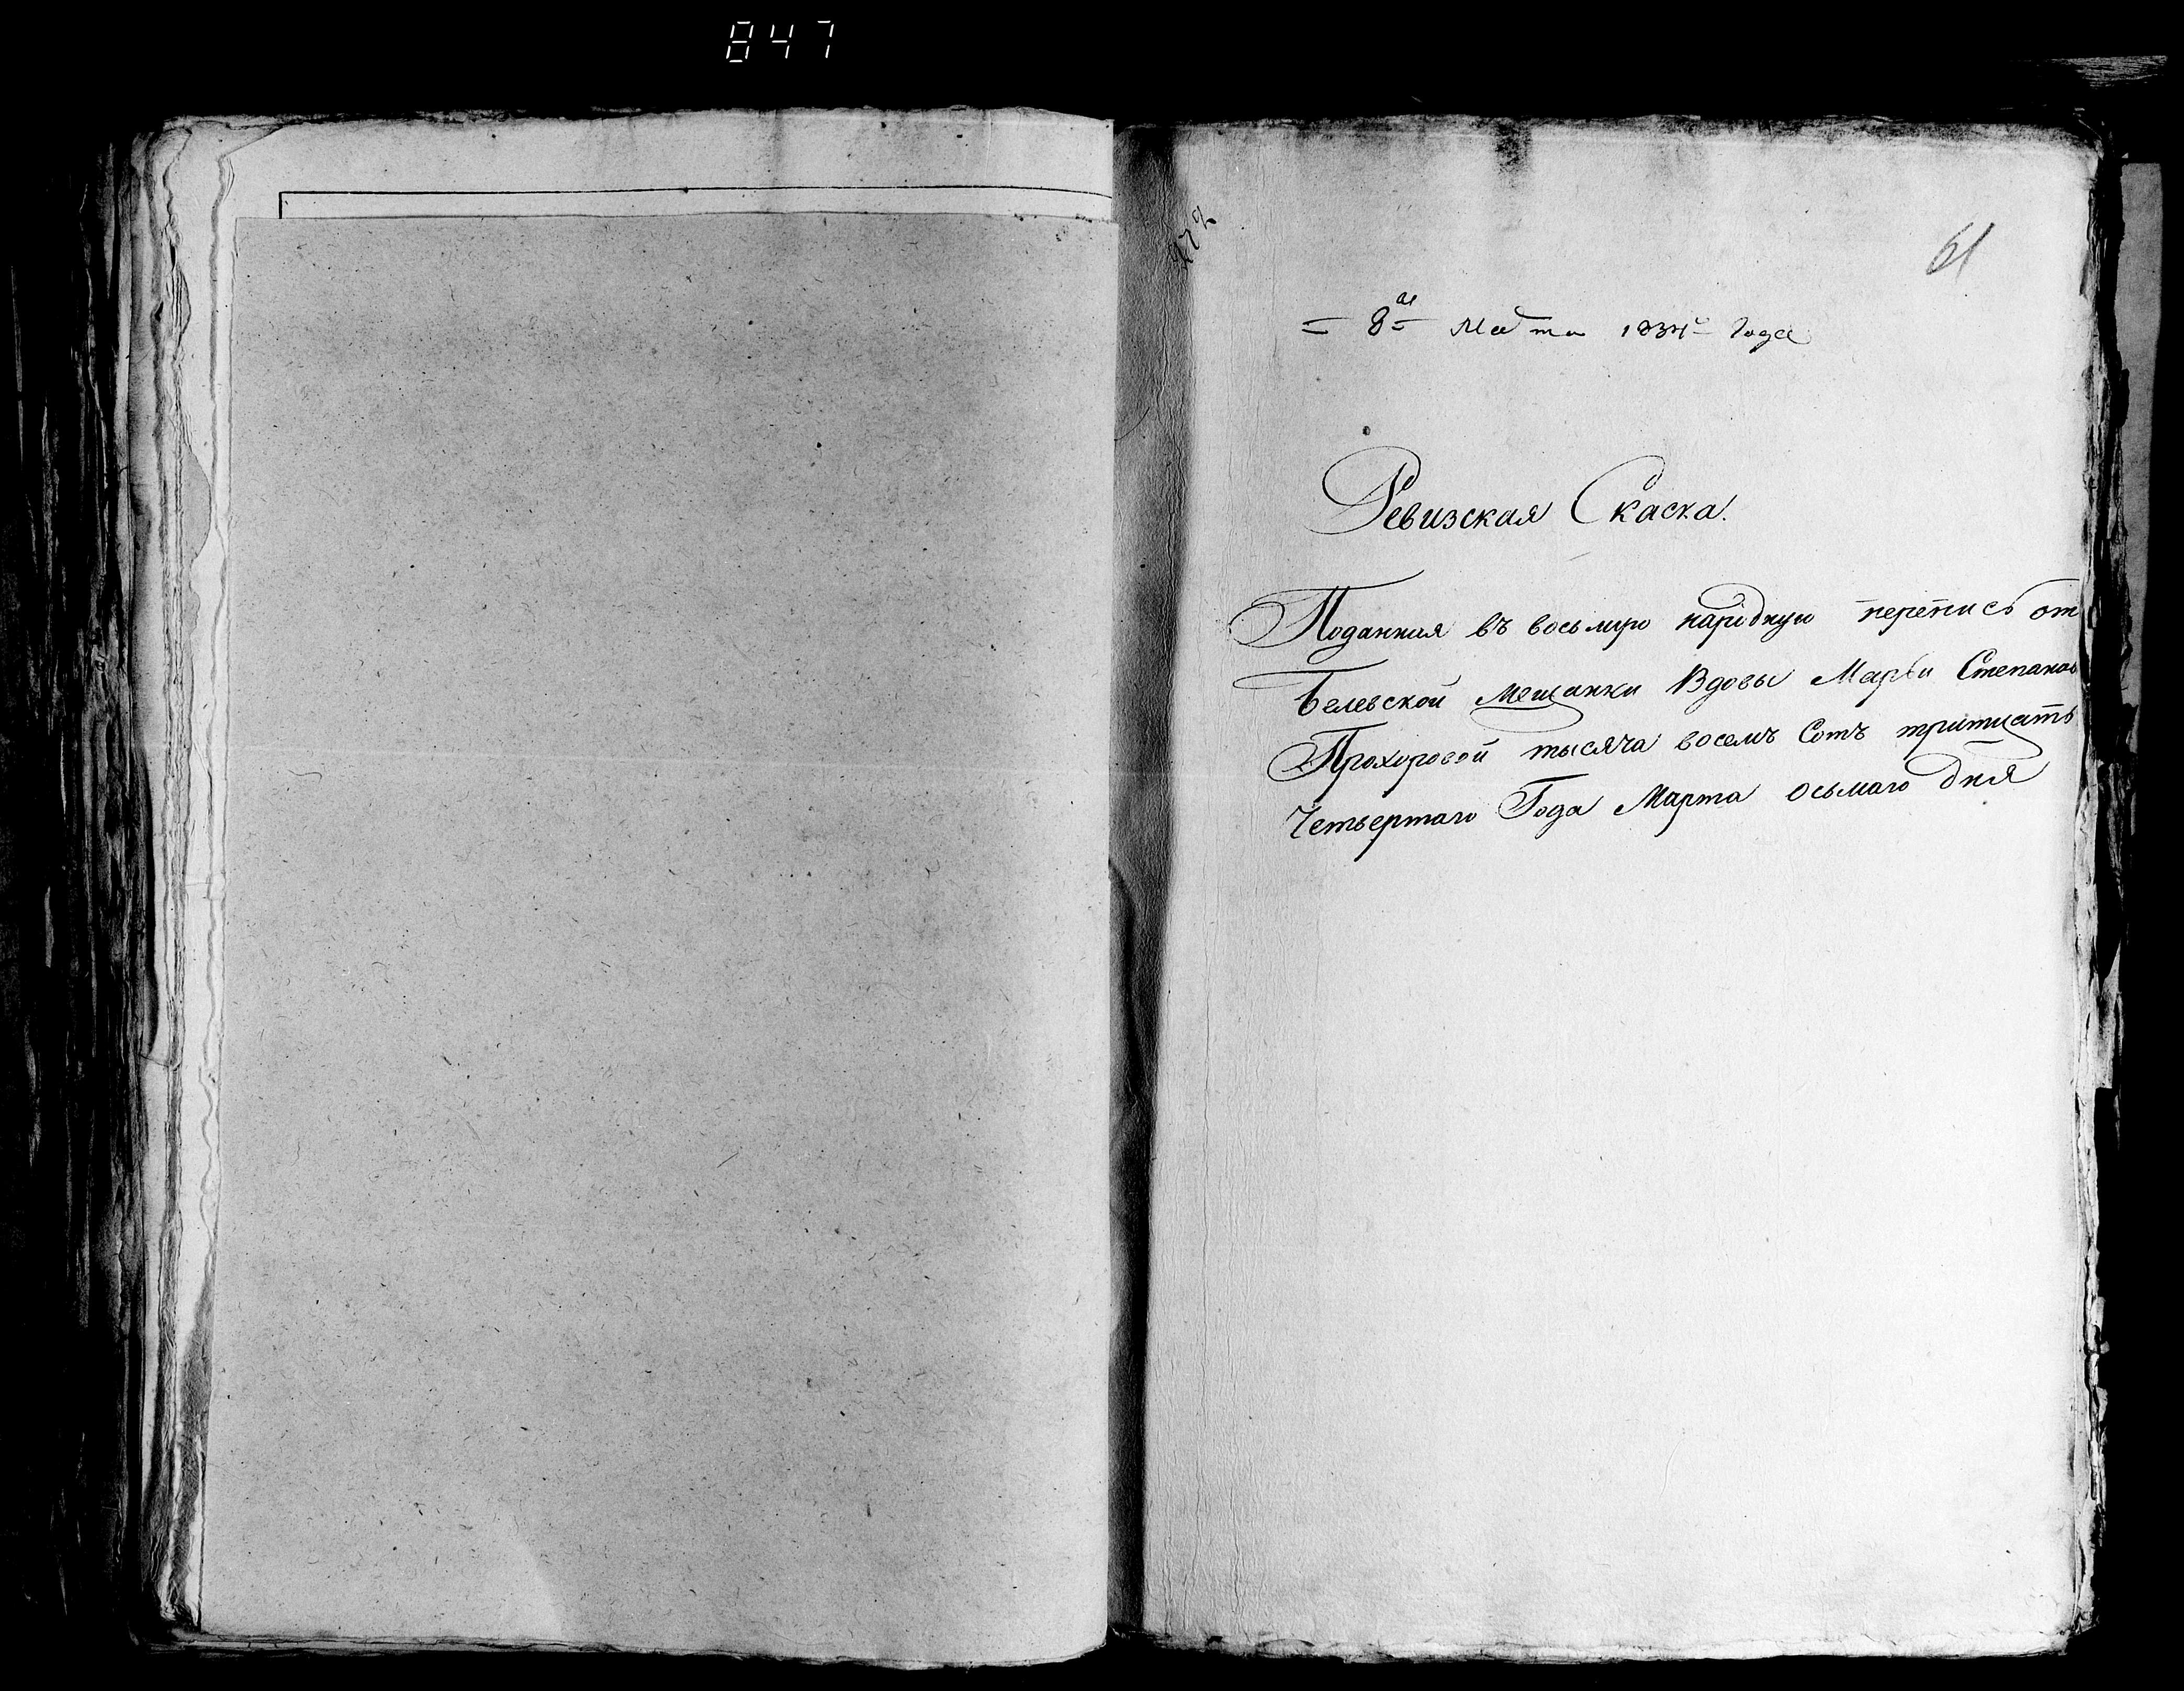 847
61
= 8го Марта 1834го Года
Ревизская Скаска.
Поданная въ восьмую народную перепись от
Белевской мещанки Вдовы Марьи Степанов
Прохоровой тысяча восемъ Сотъ тритцать
Четьвертаго Года Марта осьмаго дня